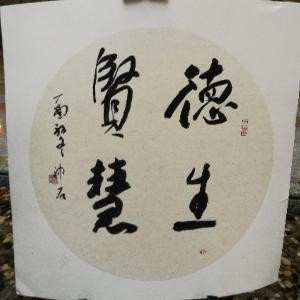 德生
賢慧
丁酉初冬